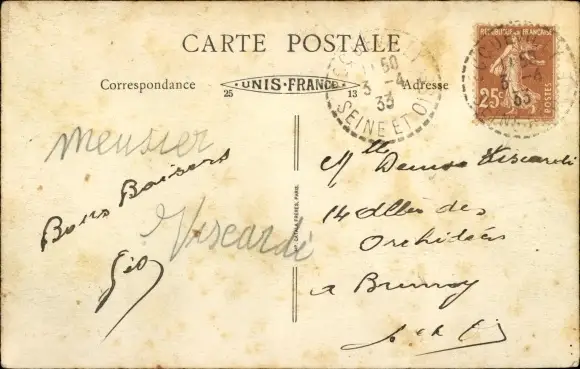 CARTE POSTALE
Correspondance
UNIS-FRANCE
25 13
Adresse
50
3 - 4
33
SEINE ET OISE
RÉPUBLIQUE FRANÇAISE
25c
POSTES
33
Meusier
Bons Baisers
Viscardi
Mlle Denise Viscardi
14 Allée des
Orchidées
a Brunoy
S et O